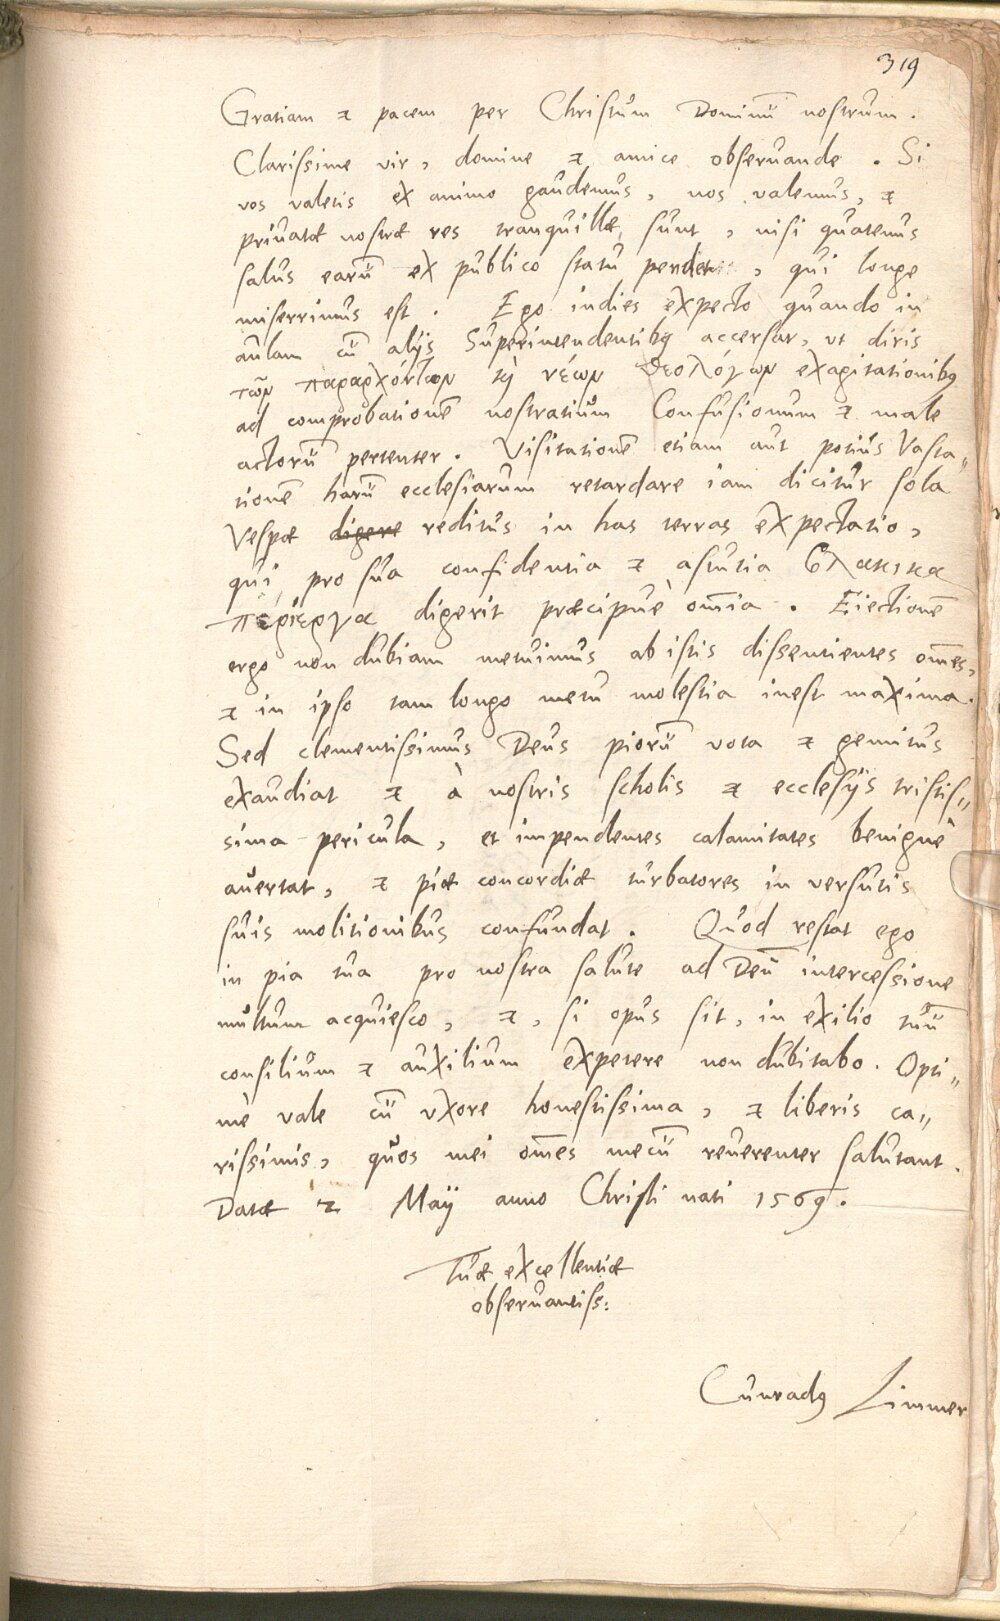 319
Gratiam & pacem per Christum Dominū nostrum.
Clarissime vir, domine & amice obseruande. Si
vos valetis ex animo gaudemus, nos valemus, &
priuatæ nostræ res tranquillæ sunt, nisi quatenus
salus earū ex publico statu pendet, qui longe
miserrimus est. Ego indies expecto quando in
aulam cū alijs Superintendentibꝰ accersar, vt diris
τῶν παραρχόντων ἢ νέων θεολόγων exagitationibꝰ
ad comprobationē nostratium Confusionum & male
actorū pertenter. Visitationē etiam aut potius Vasta„
tionē harū ecclesiarum retardare iam dicitur sola
Vespæ digere reditus in has terras expectatio,
qui pro sua confidentia & astutia βλακικα
περίεργα digerit præcipuè om̄ia. Eiectionē
ergo non dubiam metuimus ab istis dissentientes om̄es,
& in ipso tam longo metu molestia inest maxima.
Sed clementissimus Deus piorū vota & gemitus
exaudiat & à nostris scholis & ecclesijs tristis„
sima pericula, et impendentes calamitates benignè
auertat, & piæ concordiæ turbatores in versutis
suis molitionibus confundat. Quod restat ego
in pia tua pro nostra salute ad Deū intercessione
multum acquiesco, &, si opus sit, in exilio tuū
consilium & auxilium expetere non dubitabo. Opti„
mè vale cū vxore honestissima, & liberis ca„
rissimis, quos mei om̄es mecū reuerenter salutant.
Datæ 2 Maÿ anno Christi nati 1569.
Tuæ excellentiæ
obseruantiss:
Cunradꝰ Limmer